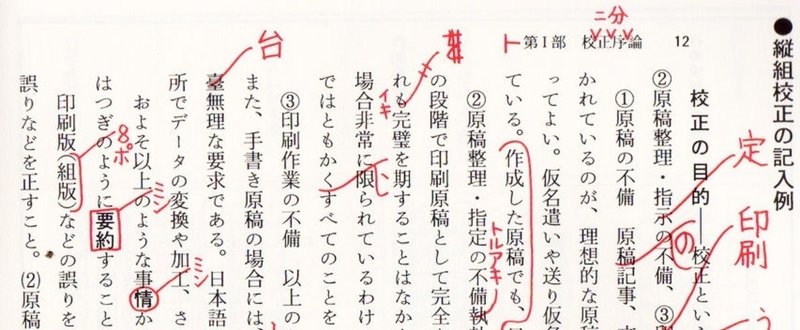 ●縦組校正の記入例
二分
ト 第Ⅰ部 校正序論 12
校正の目的――校正とい
②原稿整理・指示の不備、③
定
の
印刷
①原稿の不備 原稿記事、
かれているのが、理想的な原
ってよい。仮名遣いや送り仮名
ている。作成した原稿でも、
②原稿整理・指定の不備執
トルアキ
の段階で印刷原稿として完全
れも完璧を期することはなか
イキ
場合非常に限られているわけ
い
ではともかくすべてのことを
③印刷作業の不備 以上の
また、手書き原稿の場合には、
台
臺無理な要求である。日本語
所でデータの変換や加工、さ
ミン
およそ以上のような事情か
ミン
はつぎのように要約すること
8ポ
印刷版(組版)などの誤りを
誤りなどを正すこと。(2)原稿